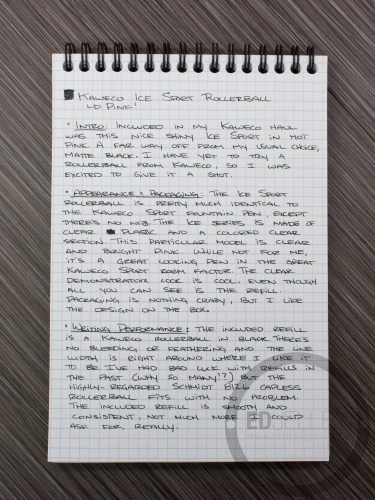 Kaweco Ice Sport Rollerball
Pink!
• Intro: Included in my Kaweco haul
was this nice shiny Ice Sport in hot
pink. A fair way off from my usual choice,
matte black. I have yet to try a
rollerball from Kaweco, so I was
excited to give it a shot.
• Appearance & Packaging: The Ice Sport
rollerball is pretty much identical to
the Kaweco Sport fountain pen, except
there's no nib. The Ice series is made of
clear plastic and a colored clear
section. This particular model is clear
and bright pink. While not for me,
it's a great looking pen in the great
Kaweco Sport form factor. The clear
demonstrator look is cool, even though
all you can see is the refill.
Packaging is nothing crazy, but I like
the design on the box.
• Writing Performance: The included refill
is a Kaweco rollerball in black. There's
no bleeding or feathering and the line
width is right around where I like it
to be. I've had bad luck with refills in
the past (why so many!?) but the
highly-regarded Schmidt 8126 capless
rollerball fits with no problem.
The included refill is smooth and
consistent, not much more I could
ask for, really.
ED